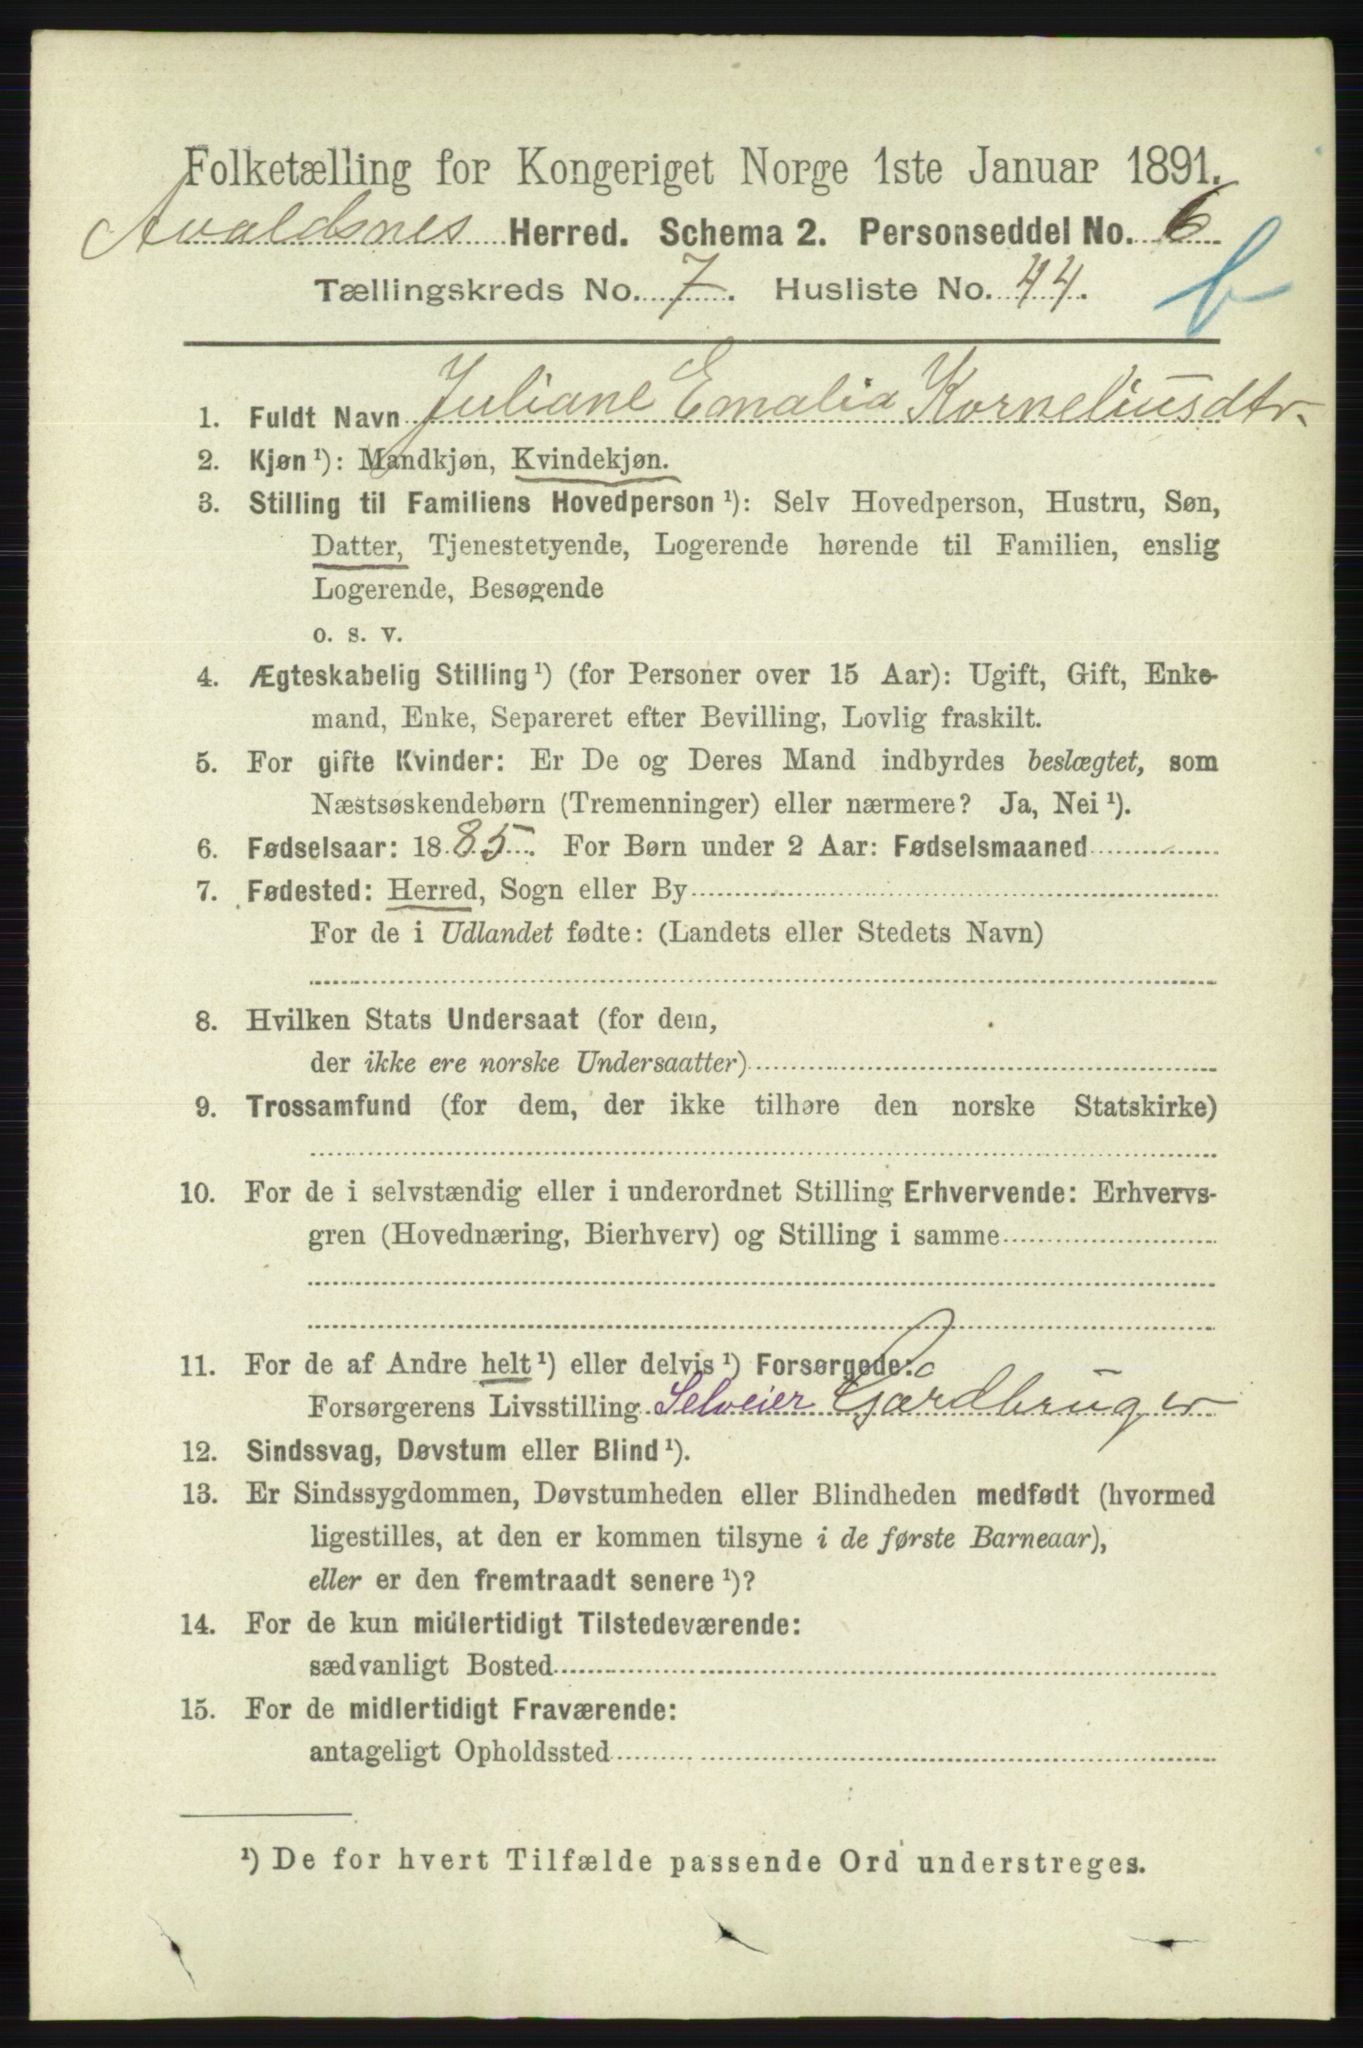 Folketælling for Kongeriget Norge 1ste Januar 1891.
Avaldsnes Herred. Schema 2. Personseddel No. 6
Tællingskreds No. 7. Husliste No. 44.
b
1. Fuldt Navn Juliane Emalia Korneliusdtr.
2. Kjøn ¹): Mandkjøn, Kvindekjøn.
3. Stilling til Familiens Hovedperson ¹): Selv Hovedperson, Hustru, Søn,
Datter, Tjenestetyende, Logerende hørende til Familien, enslig
Logerende, Besøgende
o. s. v.
4. Ægteskabelig Stilling ¹) (for Personer over 15 Aar): Ugift, Gift, Enke-
mand, Enke, Separeret efter Bevilling, Lovlig fraskilt.
5. For gifte Kvinder: Er De og Deres Mand indbyrdes beslægtet, som
Næstsøskendebørn (Tremenninger) eller nærmere? Ja, Nei ¹).
6. Fødselsaar: 1885. For Børn under 2 Aar: Fødselsmaaned
7. Fødested: Herred, Sogn eller By
For de i Udlandet fødte: (Landets eller Stedets Navn)
8. Hvilken Stats Undersaat (for dem,
der ikke ere norske Undersaatter)
9. Trossamfund (for dem, der ikke tilhøre den norske Statskirke)
10. For de i selvstændig eller i underordnet Stilling Erhvervende: Erhvervs-
gren (Hovednæring, Bierhverv) og Stilling i samme
11. For de af Andre helt ¹) eller delvis ¹) Forsørgede:
Forsørgerens Livsstilling Selveier Gardbruger
12. Sindssvag, Døvstum eller Blind ¹).
13. Er Sindssygdommen, Døvstumheden eller Blindheden medfødt (hvormed
ligestilles, at den er kommen tilsyne i de første Barneaar),
eller er den fremtraadt senere ¹)?
14. For de kun midlertidigt Tilstedeværende:
sædvanligt Bosted
15. For de midlertidigt Fraværende:
antageligt Opholdssted
¹) De for hvert Tilfælde passende Ord understreges.